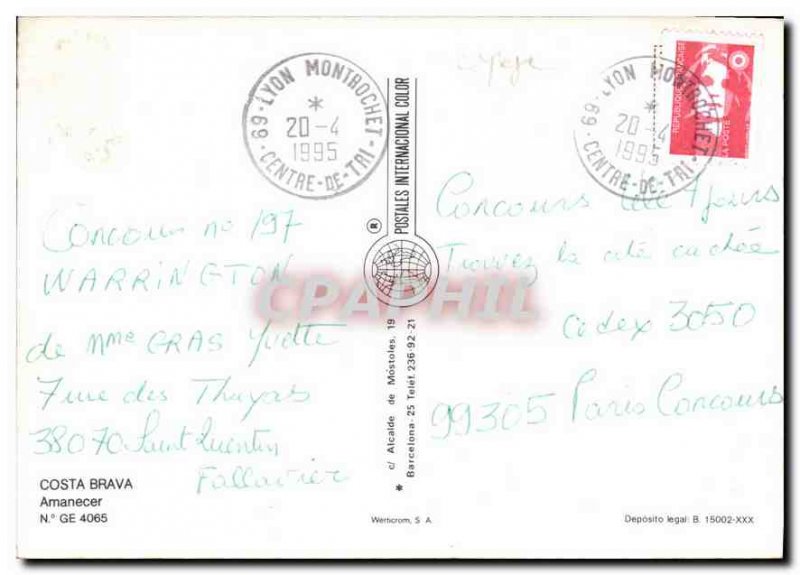 69 - LYON MONTROCHET
*
20-4
1995
CENTRE-DE-TRI
69 - LYON MONTROCHET
*
20-4
1995
CENTRE-DE-TRI
REPUBLIQUE FRANÇAISE
LA POSTE
Concours no 197
WARRINGTON
de Mme GRAS Yvette
7 rue des Thuyas
38070 Saint Quentin
Fallavier
COSTA BRAVA
Amanecer
N.° GE 4065
® POSTALES INTERNACIONAL COLOR
CPAPHIL
* c/ Alcalde de Móstoles, 19
Barcelona-25 Teléf. 236-92-21
Concours Télé 7 jours
Trouvez la cité cachée
Cedex 3050
99305 Paris Concours
Wernerom, S. A.
Depósito legal: B. 15002-XXX